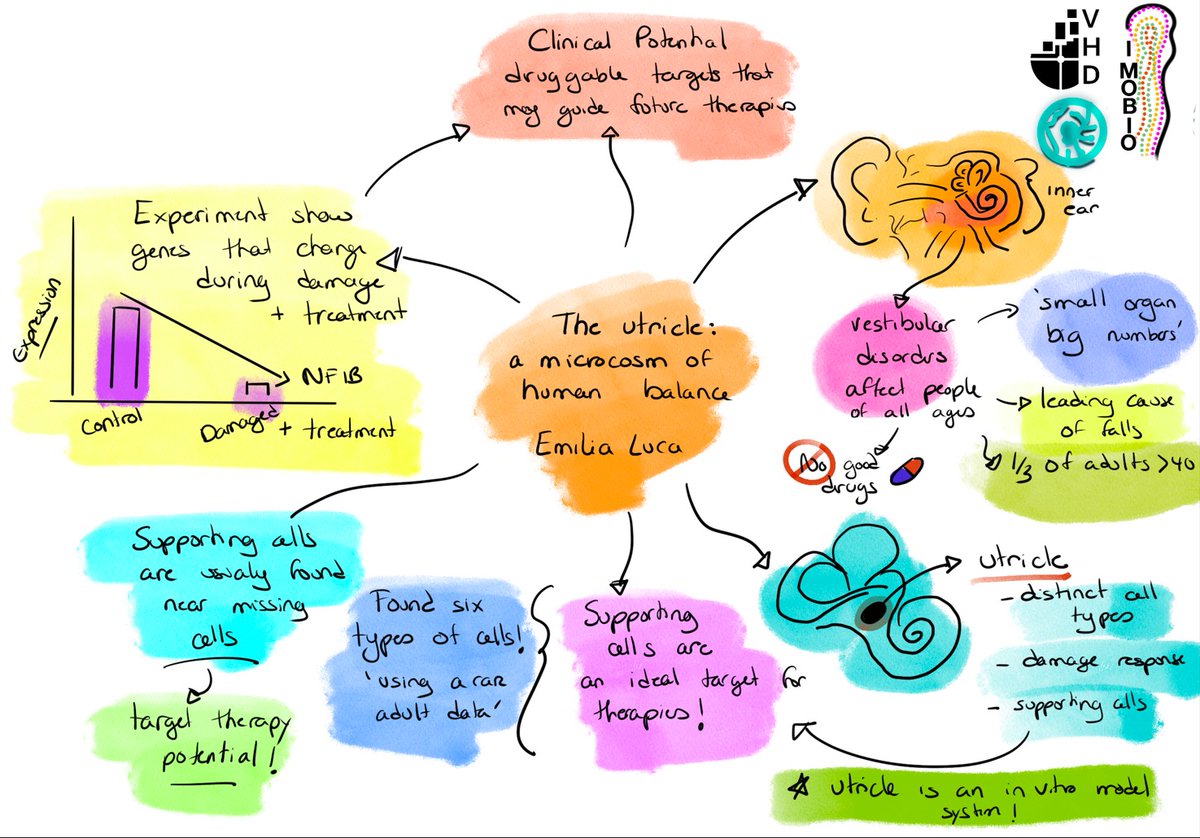 Clinical Potential
druggable targets that
may guide future therapies
VHD
IMOBIO
inner
ear
Experiment show
genes that change
during damage
+ treatment
Expression
NFIB
Control
Damaged + treatment
The utricle:
a microcosm of
human balance
Emilia Luca
vestibular
disorders
affect people
of all ages
'small organ
big numbers'
leading cause
of falls
1/3 of adults >40
No good
drugs
Supporting cells
are usualy found
near missing
cells
target therapy
potential!
Found six
types of cells!
'using a rare
adult data'
Supporting
cells are
an ideal target for
therapies!
utricle
- distinct cell
types
- damage response
- supporting cells
* utricle is an in vitro model
system!